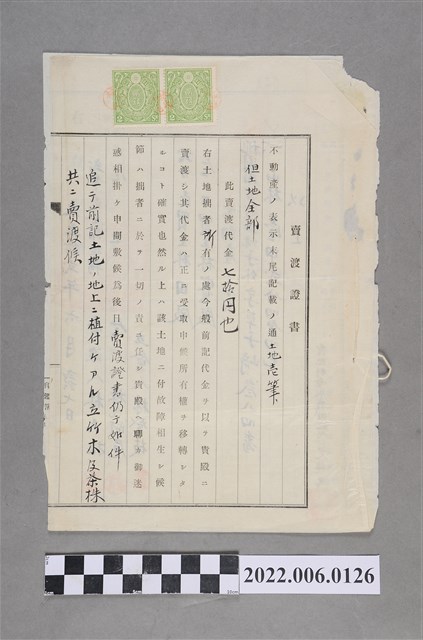 賣渡證書
不動產ノ表示末尾記載ノ通土地壱筆
但土地全部
此賣渡代金七拾円也
右土地拙者所有ノ處今般前記代金ヲ以テ貴殿ニ
賣渡シ其代金ハ正ニ受取申候所有權ヲ移轉シタ
ルコト確實也然ル上ハ該土地ニ付故障相生シ候
節ハ拙者ニ於テ一切ノ責ニ任シ貴殿ヘ聊カ御迷
惑相掛ケ申間敷候爲後日賣渡證書仍テ如件
追テ前記土地ノ地上ニ植付ケアル立竹木及桑株
共ニ賣渡候
2022.006.0126